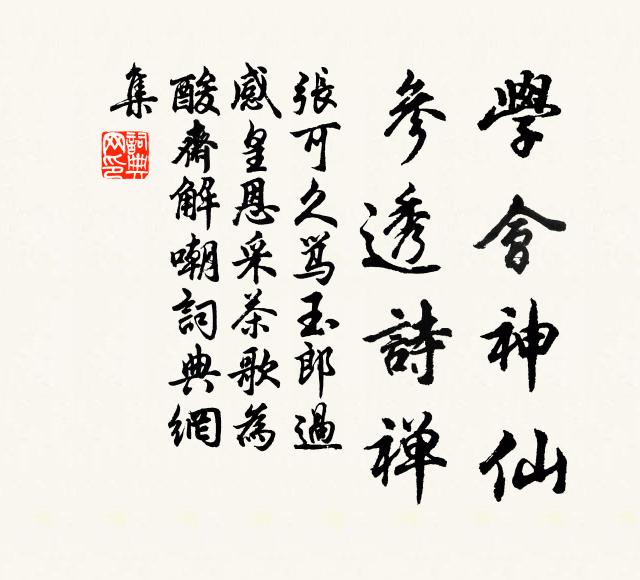 學會神仙
參透詩禅
張可久罵玉郎過
感皇恩采茶歌為
酸齋解嘲詞典網
集
詞典
网印